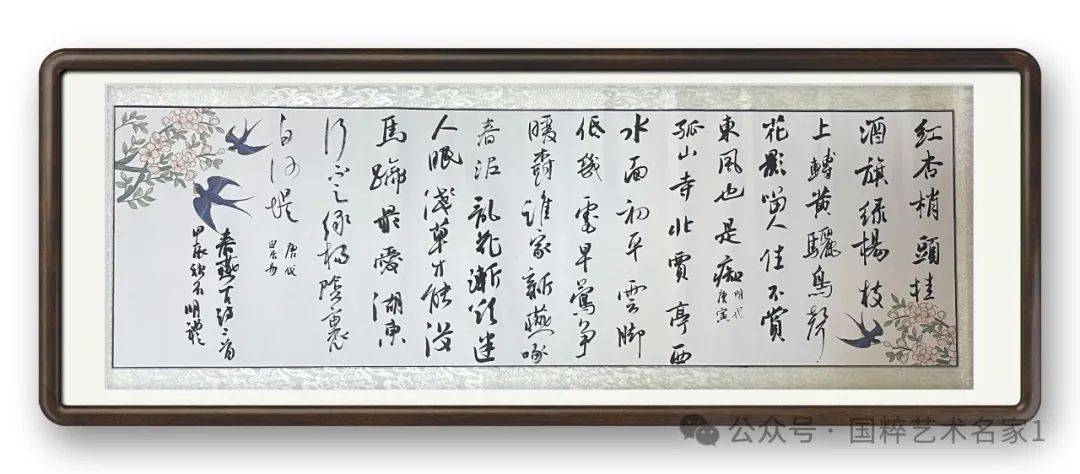 红杏梢頭挂
酒旗绿楊枝
上轉黄驪鳥聲
花影留人住不賞
東風也是痴
明代
唐寅
孤山寺北賈亭西
水面初平雲脚
低幾處早鶯争
暖樹誰家新燕啄
春泥乱花漸欲迷
人眼淺草才能没
馬蹄最愛湖東
行不足绿楊陰裏
白沙堤
唐代
白居易
春燕古詩二首
甲辰秋 明禮
公众号 · 国粹艺术名家1